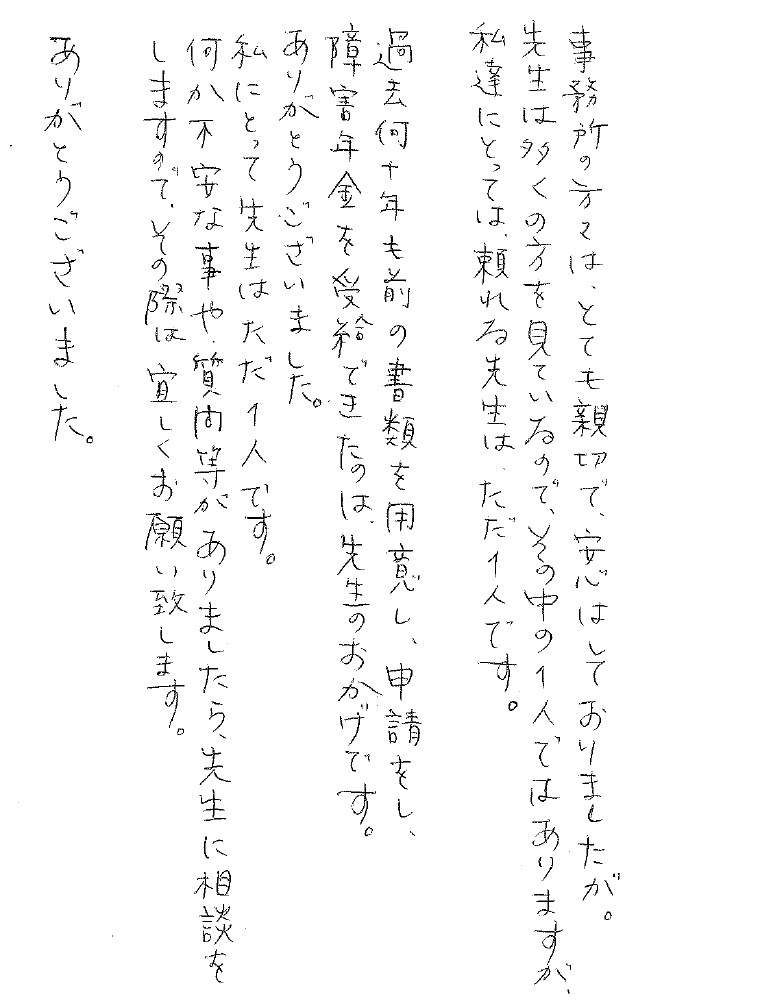 事務所の方々は、とても親切で、安心はしておりましたが。
先生は多くの方を見ているので、その中の1人ではありますが、
私達にとっては、頼れる先生は、ただ1人です。
過去何十年も前の書類を用意し、申請をし、
障害年金を受給できたのは、先生のおかげです。
ありがとうございました。
私にとって先生はただ1人です。
何か不安な事や、質問等がありましたら、先生に相談を
しますので、その際は宜しくお願い致します。
ありがとうございました。